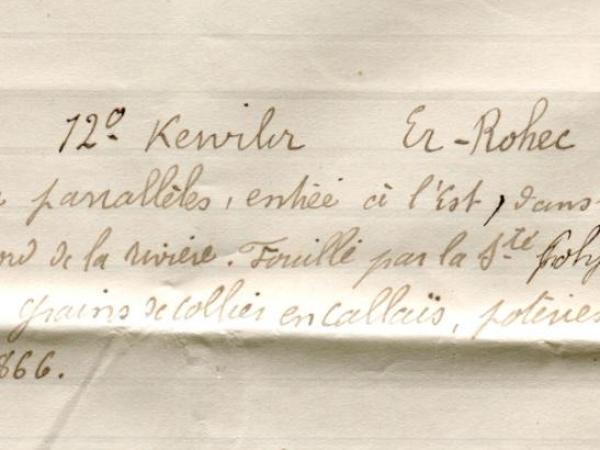 12º Kervilor Er-Rohec
parrallèles, entrée à l'Est, dans
ord de la rivière. Fouillé par la Sté Poly
grains de collier en callaïs, poteries
866.